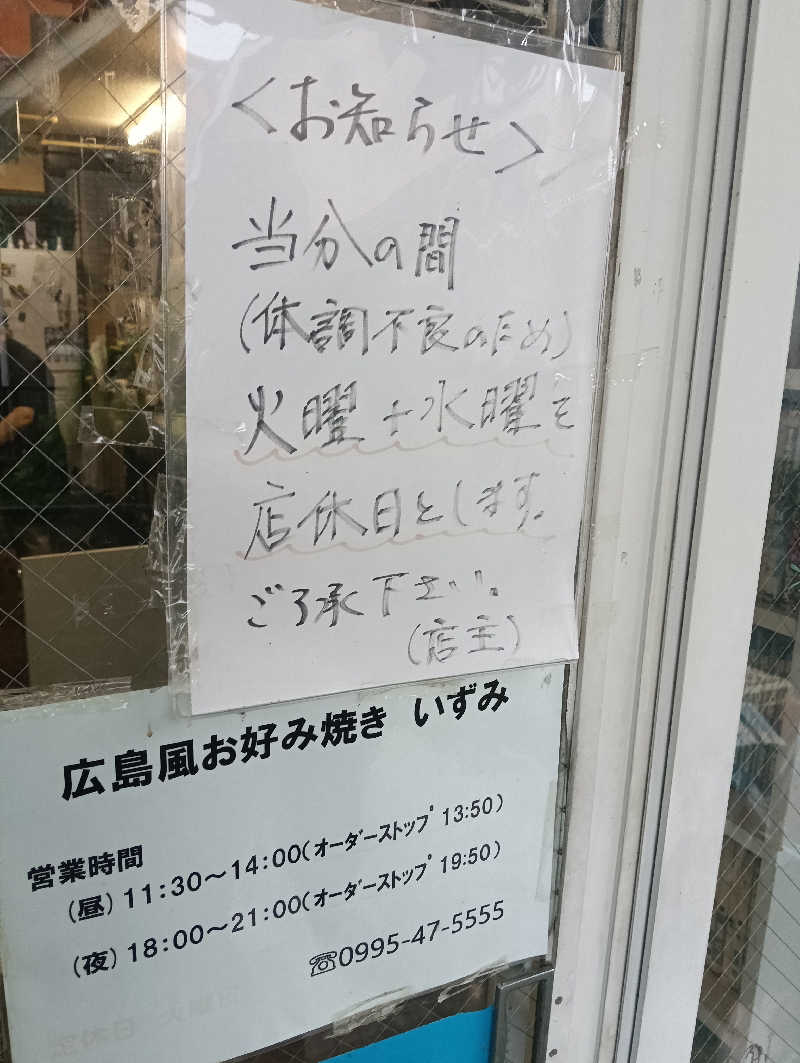 ＜お知らせ＞
当分の間
(体調不良のため)
火曜+水曜を
店休日とします。
ご了承下さい。
(店主)
広島風お好み焼き いずみ
営業時間
(昼) 11:30～14:00(オーダーストップ 13:50)
(夜) 18:00～21:00(オーダーストップ 19:50)
☏0995-47-5555